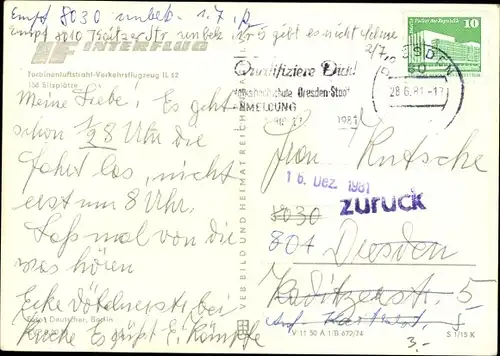 Empf 8030 unbek. 1.7.
Empf 8010 Str unbek Nr 5 gibt es nicht
2/7.
INTERFLUG
Turbinenluftstrahl-Verkehrsflugzeug IL 62
150 Sitzplätze
Qualifiziere Dich!
Volkshochschule Dresden-Stadt
ANMELDUNG
1981
DRESDEN
28.6.81-17
10
Meine Liebe! Es geht
schon 1/2 8 Uhr die
Fahrt los, nicht
erst um 8 Uhr.
Laß mal von dir
was hören
Ecke bei
Kirche Es grüßt E.
Frau Kutsche
16. Dez. 1981
zurück
8030
801 Dresden
Kaditzerstr. 5
Auf
3.-
VEB BILD UND HEIMAT REICHENBACH
Deutscher, Berlin
V 11 50 A 1/B 672/74
S 1/15 K